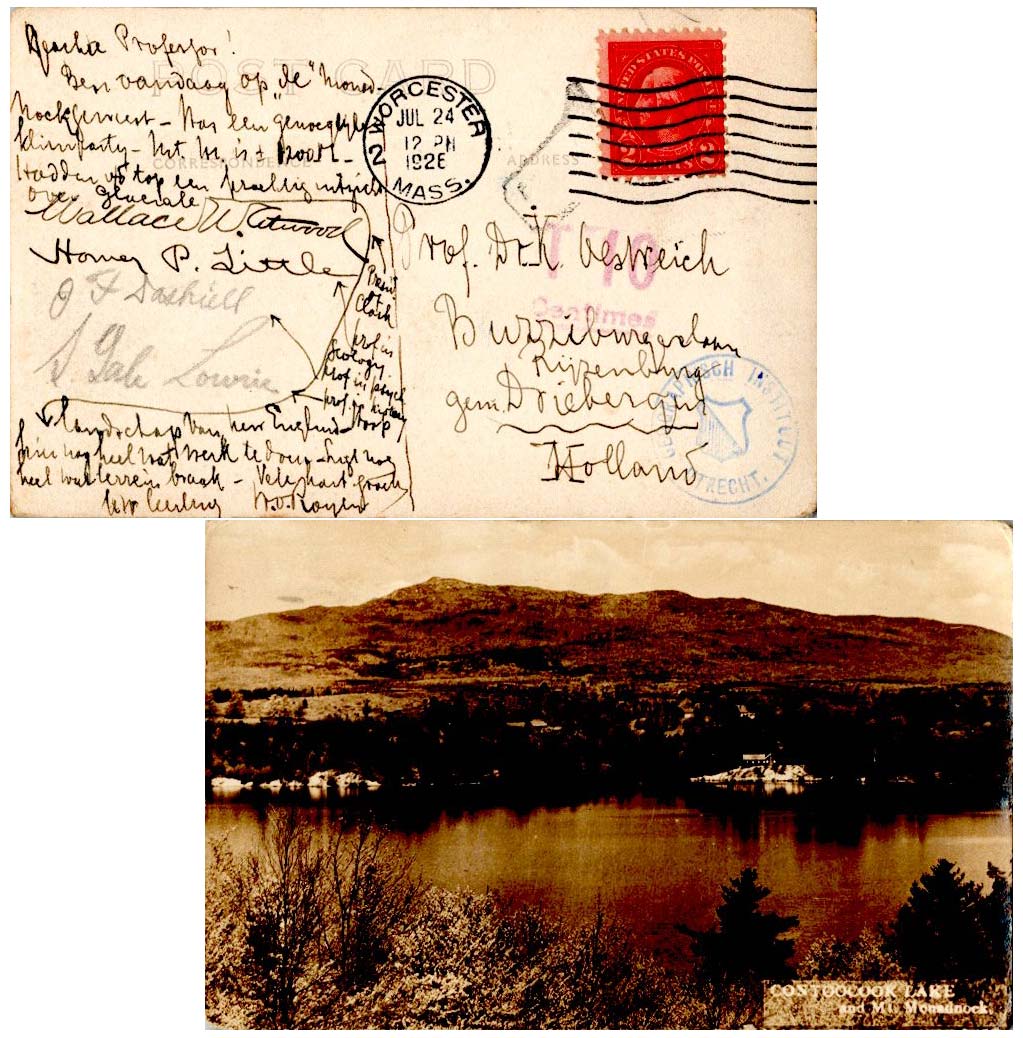 Geachte Professor!
Ben vandaag op „de" Monad-
nock geweest – Was een genoegelijke
klimparty – Mt M. is ± 1000 M. –
Hadden op top een prachtig uitzicht
over glaciale
Wallace W. Atwood
Homer P. Little
J F Dashiell
S. Gale Lowrie
Presid.
Clark
prof in
Geology
Prof in psych
prof in history
landschap van New England –
hier nog heel wat werk te doen – Ligt nog
heel wat terrein braak – Vele hart. groeten
Uw leerling W. v. Royen
POST CARD
CORRESPONDENCE
ADDRESS
WORCESTER
2
JUL 24
12 PM
1926
MASS.
UNITED STATES POSTAGE
2 2
T 10
Centimes
Prof. Dr. K. Oestreich
Rijzenburg
gem. Driebergen
Holland
GEOGRAPHISCH INSTITUUT
UTRECHT.
CONTOOCOOK LAKE
and Mt. Monadnock.